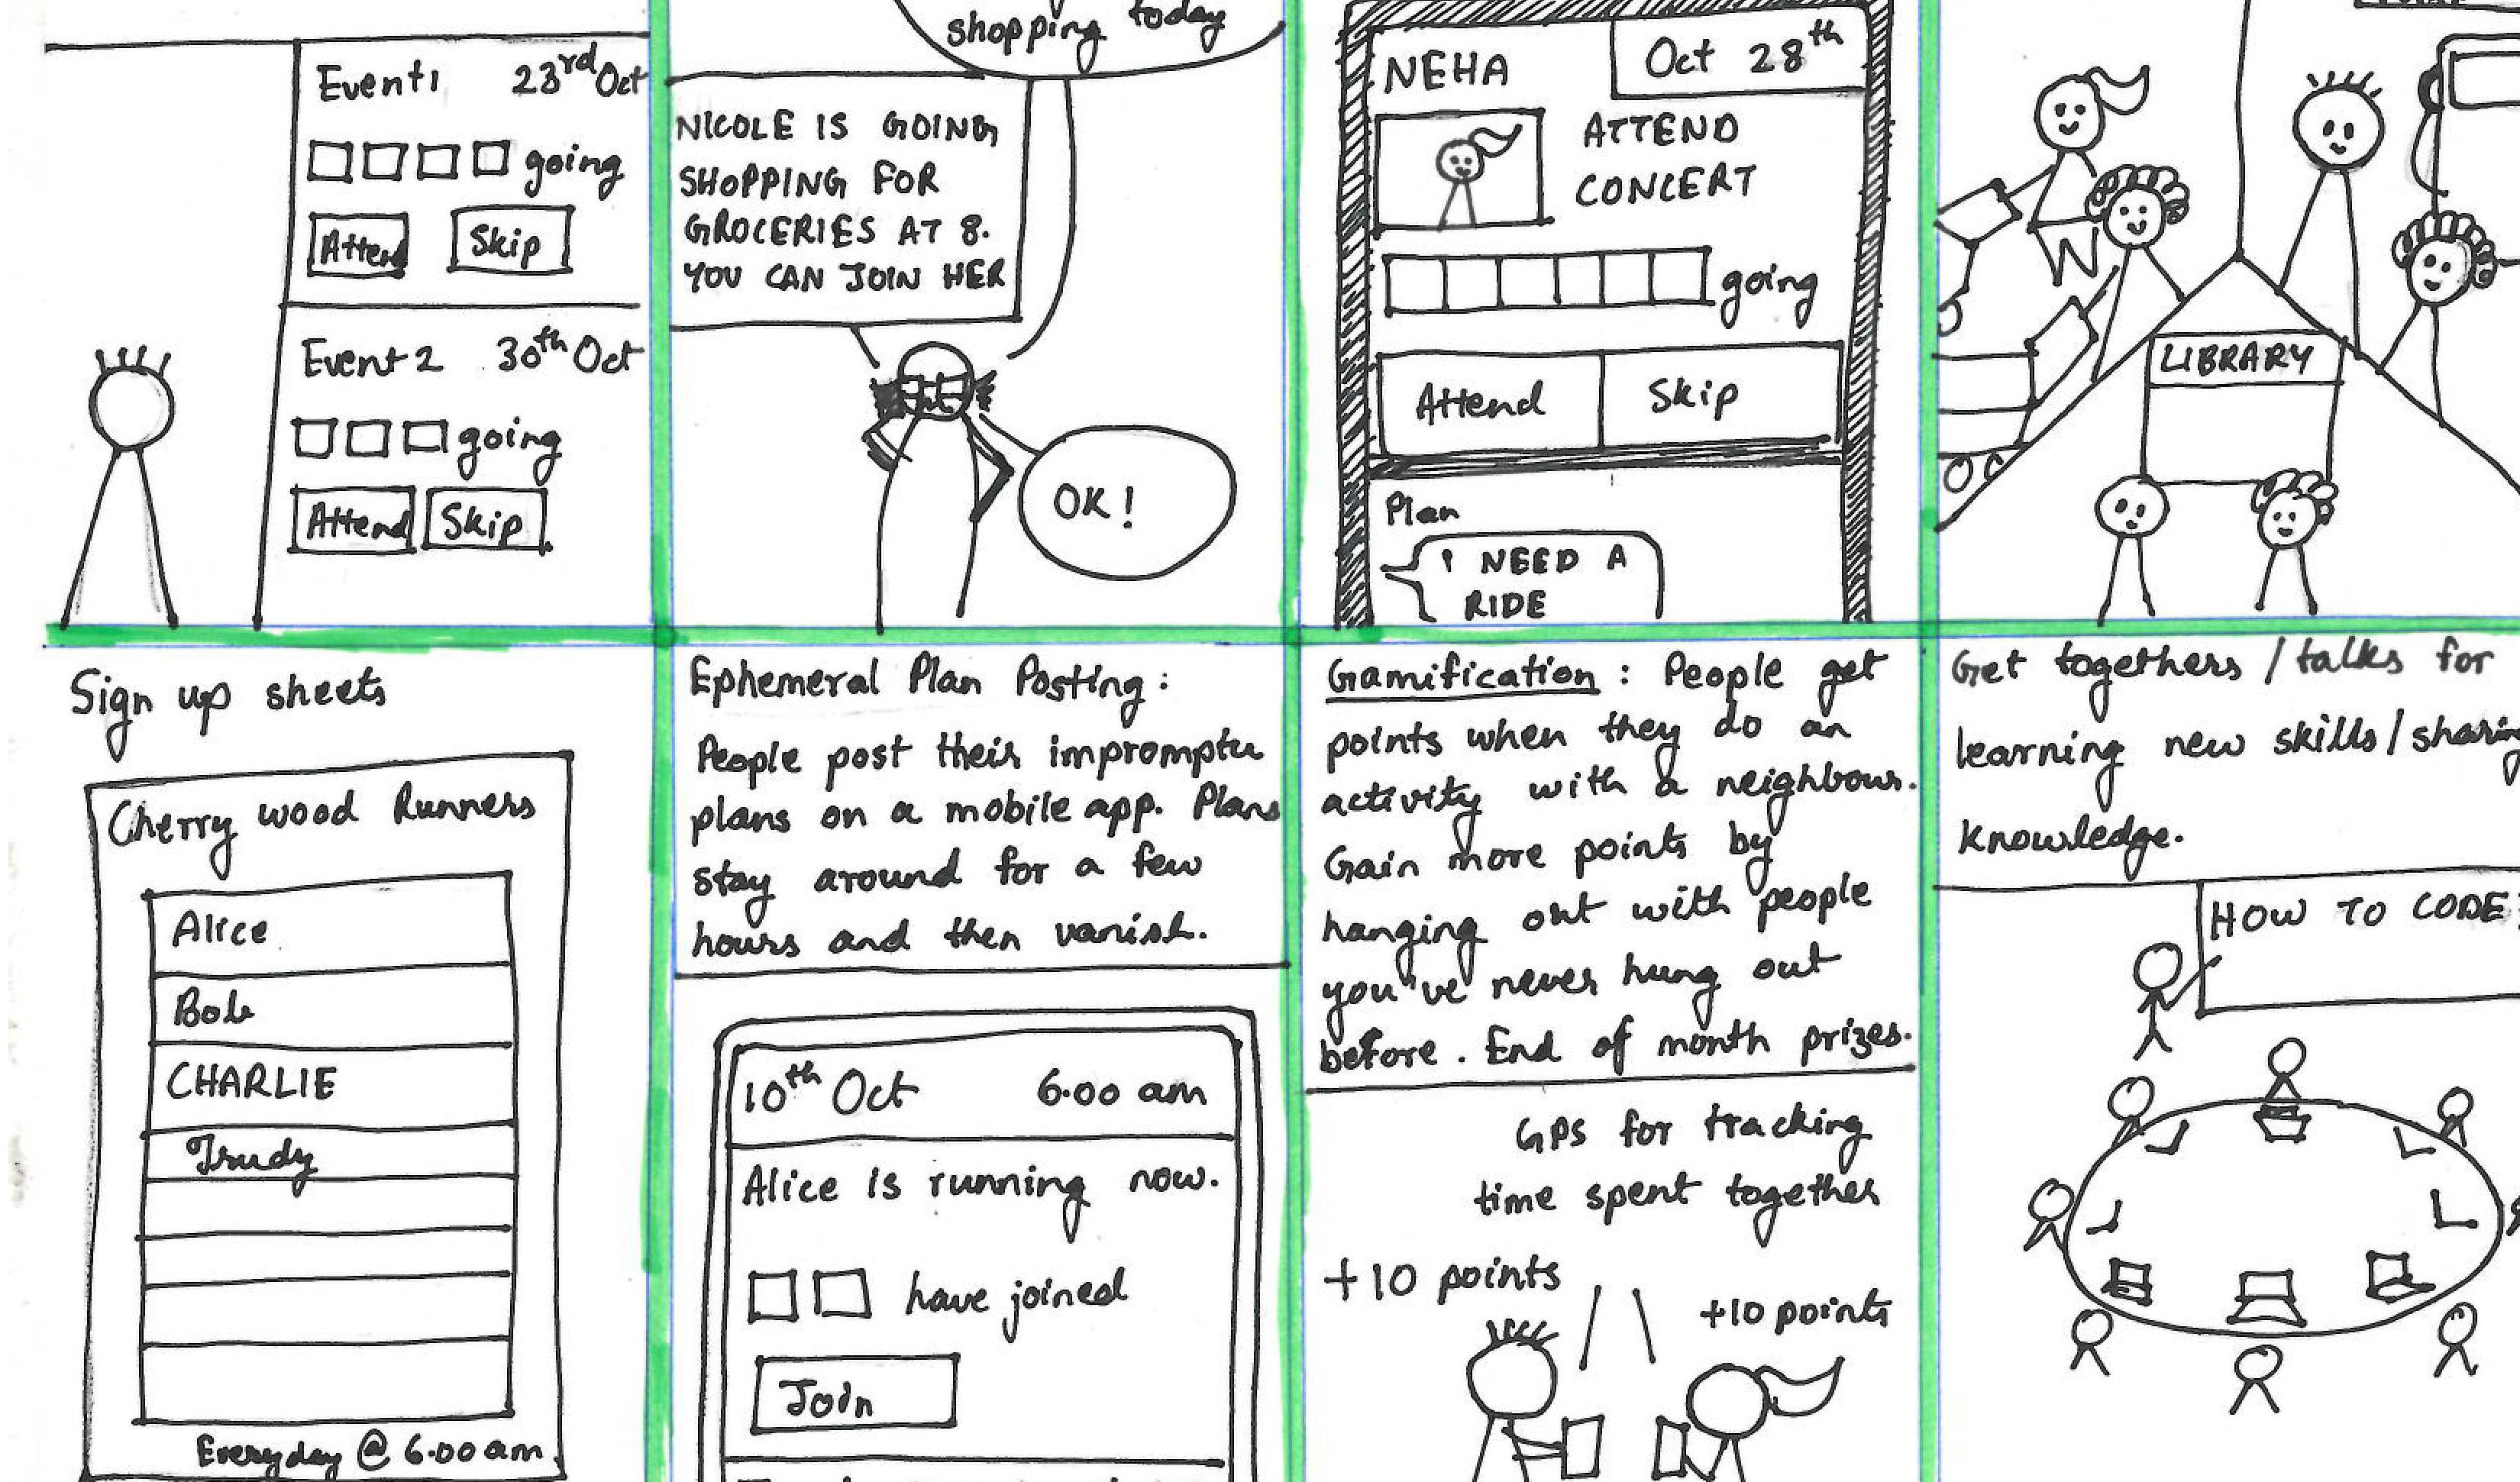 Event1 23rd Oct
going
Attend Skip
Event 2 30th Oct
going
Attend Skip
shopping today
NICOLE IS GOING
SHOPPING FOR
GROCERIES AT 8.
YOU CAN JOIN HER
OK!
NEHA Oct 28th
ATTEND
CONCERT
going
Attend Skip
Plan
I NEED A
RIDE
LIBRARY
Sign up sheets
Cherry wood Runners
Alice
Bob
CHARLIE
Trudy
Everyday @ 6.00 am
Ephemeral Plan Posting:
People post their impromptu
plans on a mobile app. Plans
stay around for a few
hours and then vanish.
10th Oct 6.00 am
Alice is running now.
have joined
Join
Gamification : People get
points when they do an
activity with a neighbour.
Gain more points by
hanging out with people
you've never hung out
before. End of month prizes.
GPS for tracking
time spent together
+10 points
+10 points
Get togethers / talks for
learning new skills/sharing
knowledge.
HOW TO CODE